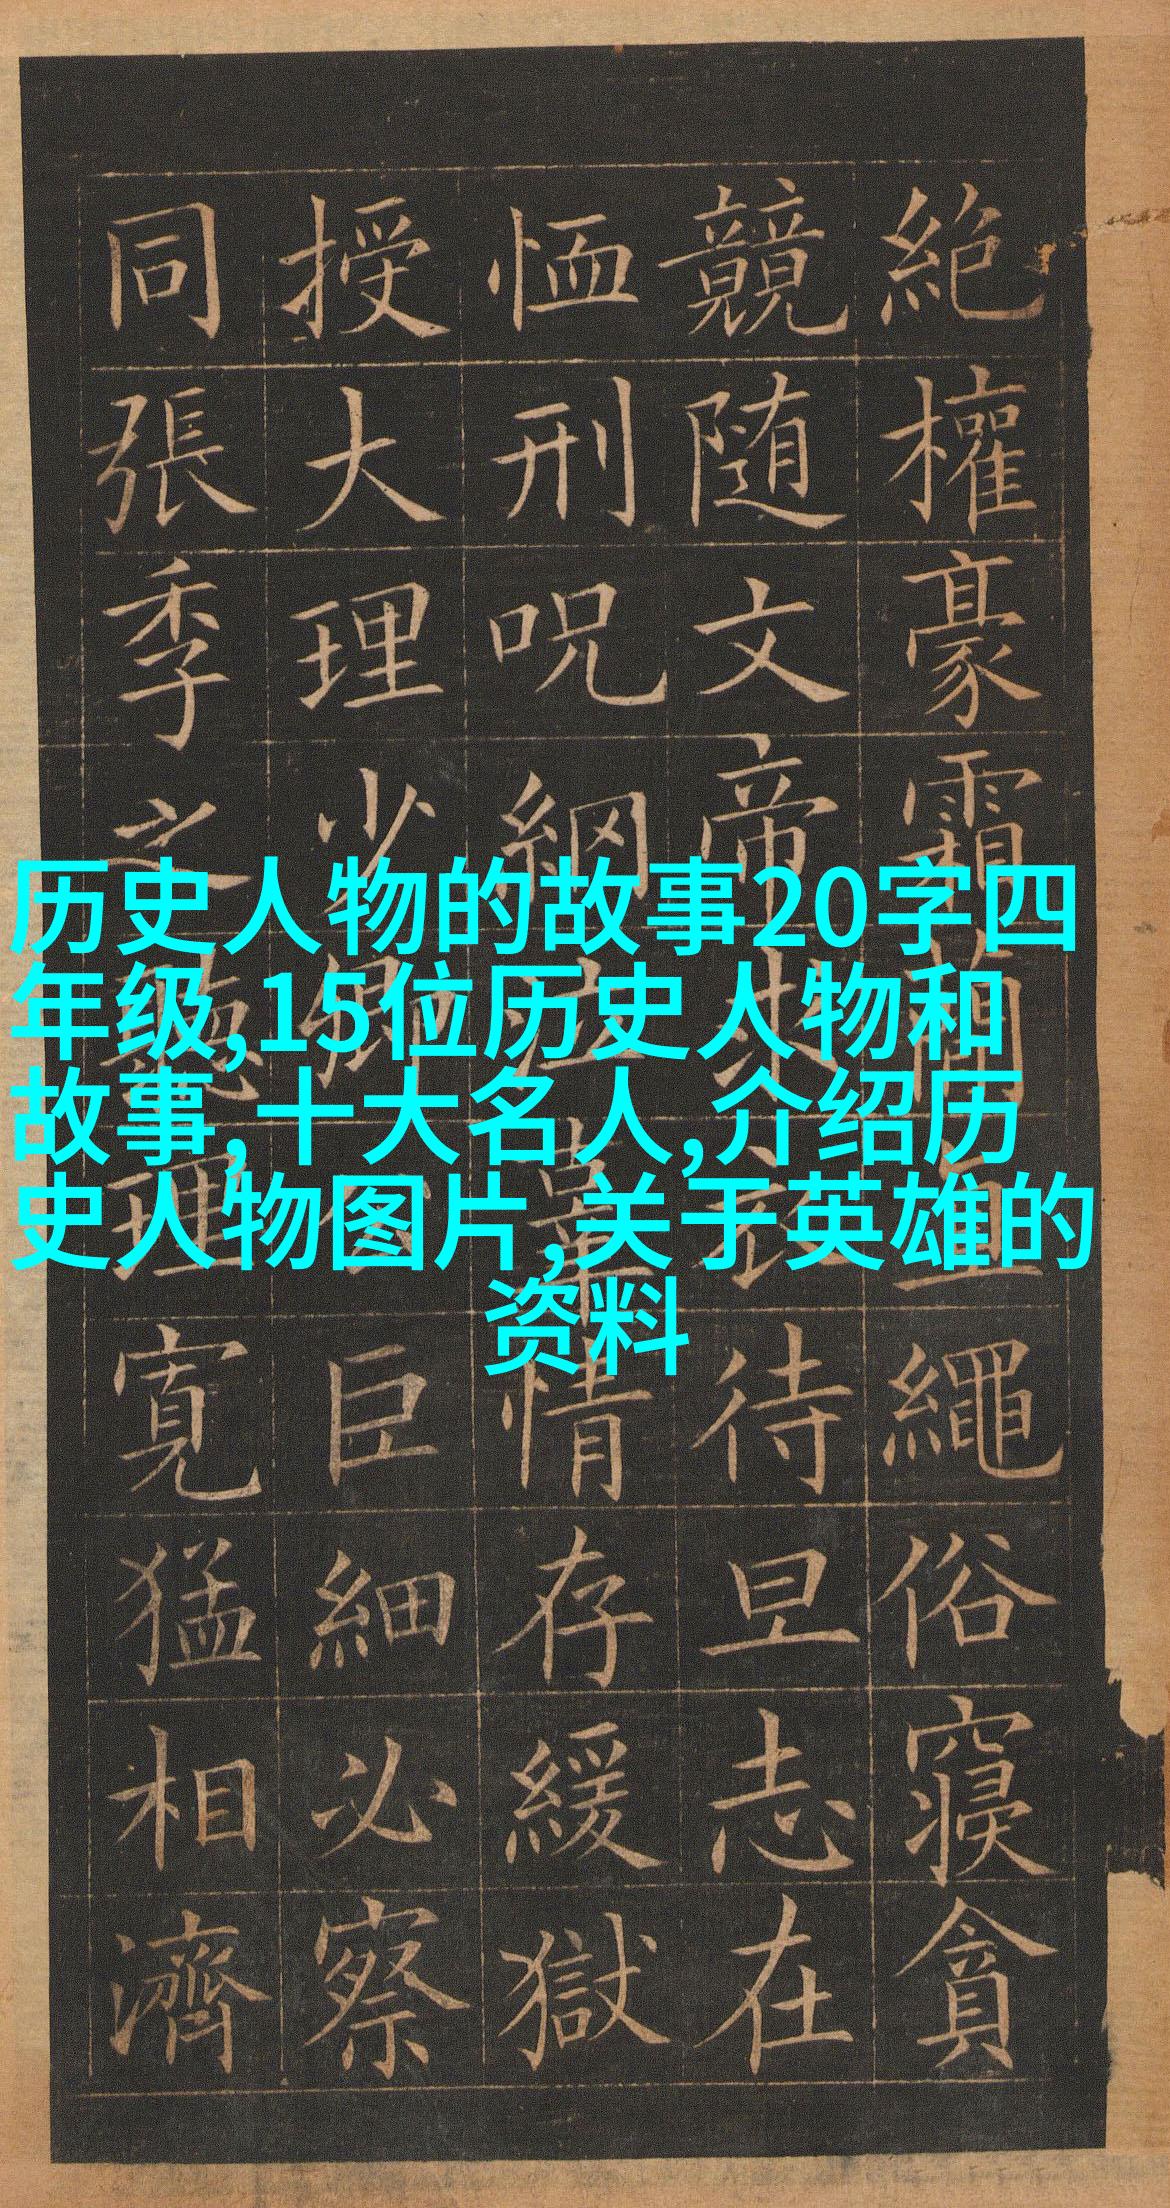 历史人物的故事20字四
年级,15位历史人物和
故事,十大名人,介绍历
史人物图片,关于英雄的
资料
絶權豪霜簡直繩俗寝貪
競随文帝求衣待旦志在
恤刑呪網泣辜情存緩獄
授大理少卿公巨細必察
同張季之聽理寛猛相濟